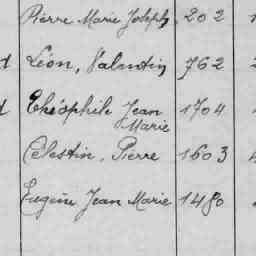 Pierre Marie Joseph 202
Léon, Valentin 762
Théophile Jean 1704
Marie
Célestin, Pierre 1603
Eugène Jean Marie 1480